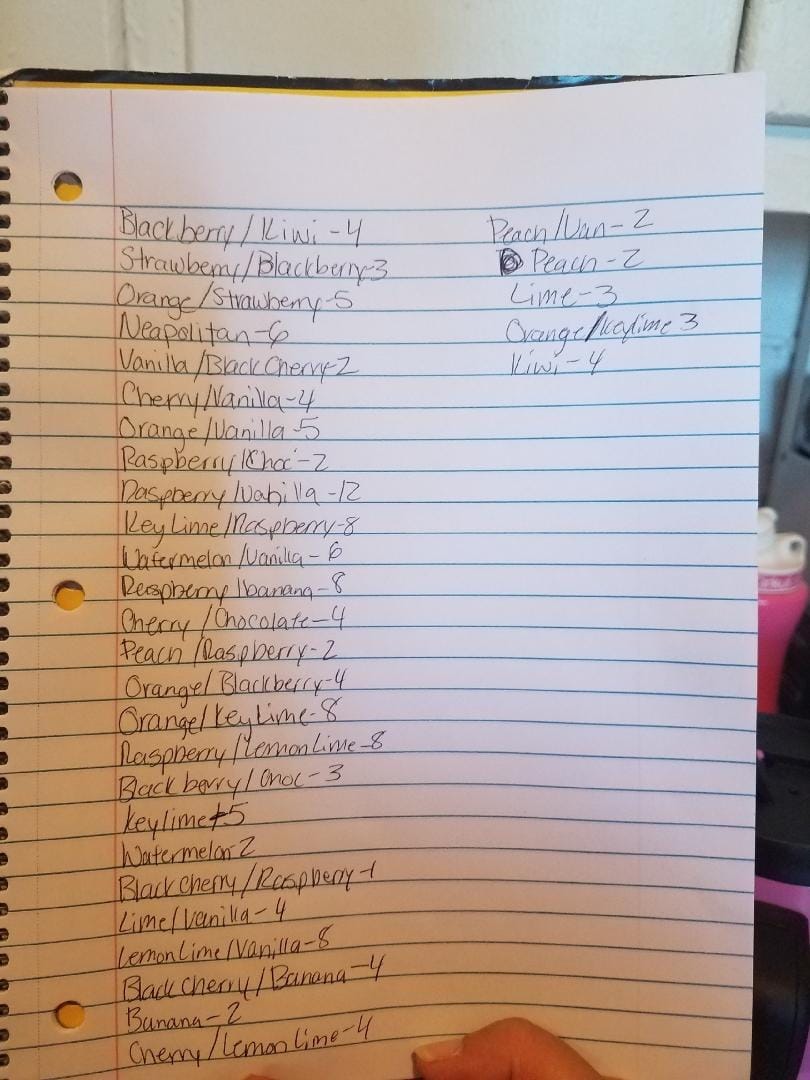 Blackberry/Kiwi-4
Strawberry/Blackberry-3
Orange/Strawberry-5
Neapolitan-6
Vanilla/Black Cherry-2
Cherry/Vanilla-4
Orange/Vanilla-5
Raspberry/Choc-2
Raspberry/Vanilla-12
Key Lime/Raspberry-8
Watermelon/Vanilla-6
Raspberry/banana-8
Cherry/Chocolate-4
Peach/Raspberry-2
Orange/Blackberry-4
Orange/Key Lime-8
Raspberry/Lemon Lime-8
Blackberry/Choc-3
Keylime-5
Watermelon-2
Black cherry/Raspberry-1
Lime/Vanilla-4
Lemon Lime/Vanilla-8
Black cherry/Banana-4
Banana-2
Cherry/Lemon Lime-4
Peach/Van-2
Peach-2
Lime-3
Orange/keylime 3
Kiwi-4